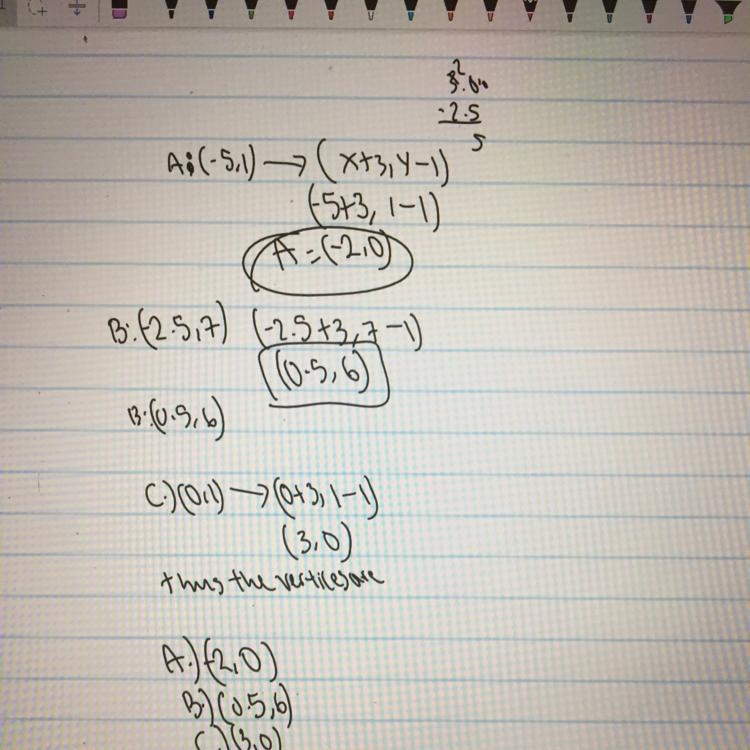 3.00
2
-2.5
5
A:(-5,1) → (x+3, y-1)
(-5+3, 1-1)
A=(-2,0)
B:(-2.5,7) (-2.5+3, 7-1)
(0.5,6)
B:(0.5,6)
C.)(0,1) → (0+3, 1-1)
(3,0)
thus the vertices are
A.)(-2,0)
B.)(0.5,6)
C.)(3,0)